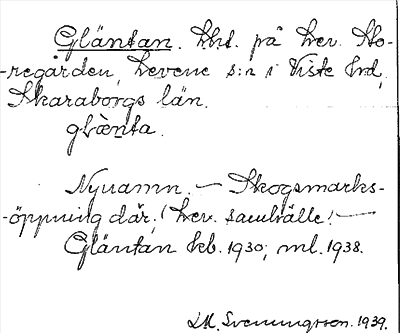 Gläntan. hbt. på hev. Sto-
-regården, Levene s:n i Viste hrd,
Skaraborgs län.
glänta.
Nynamn. — Skogsmarks-
-öppning där. (hev. samhälle.) —
Gläntan lkb. 1930; ml. 1938.
I.M. Svenningsson. 1939.